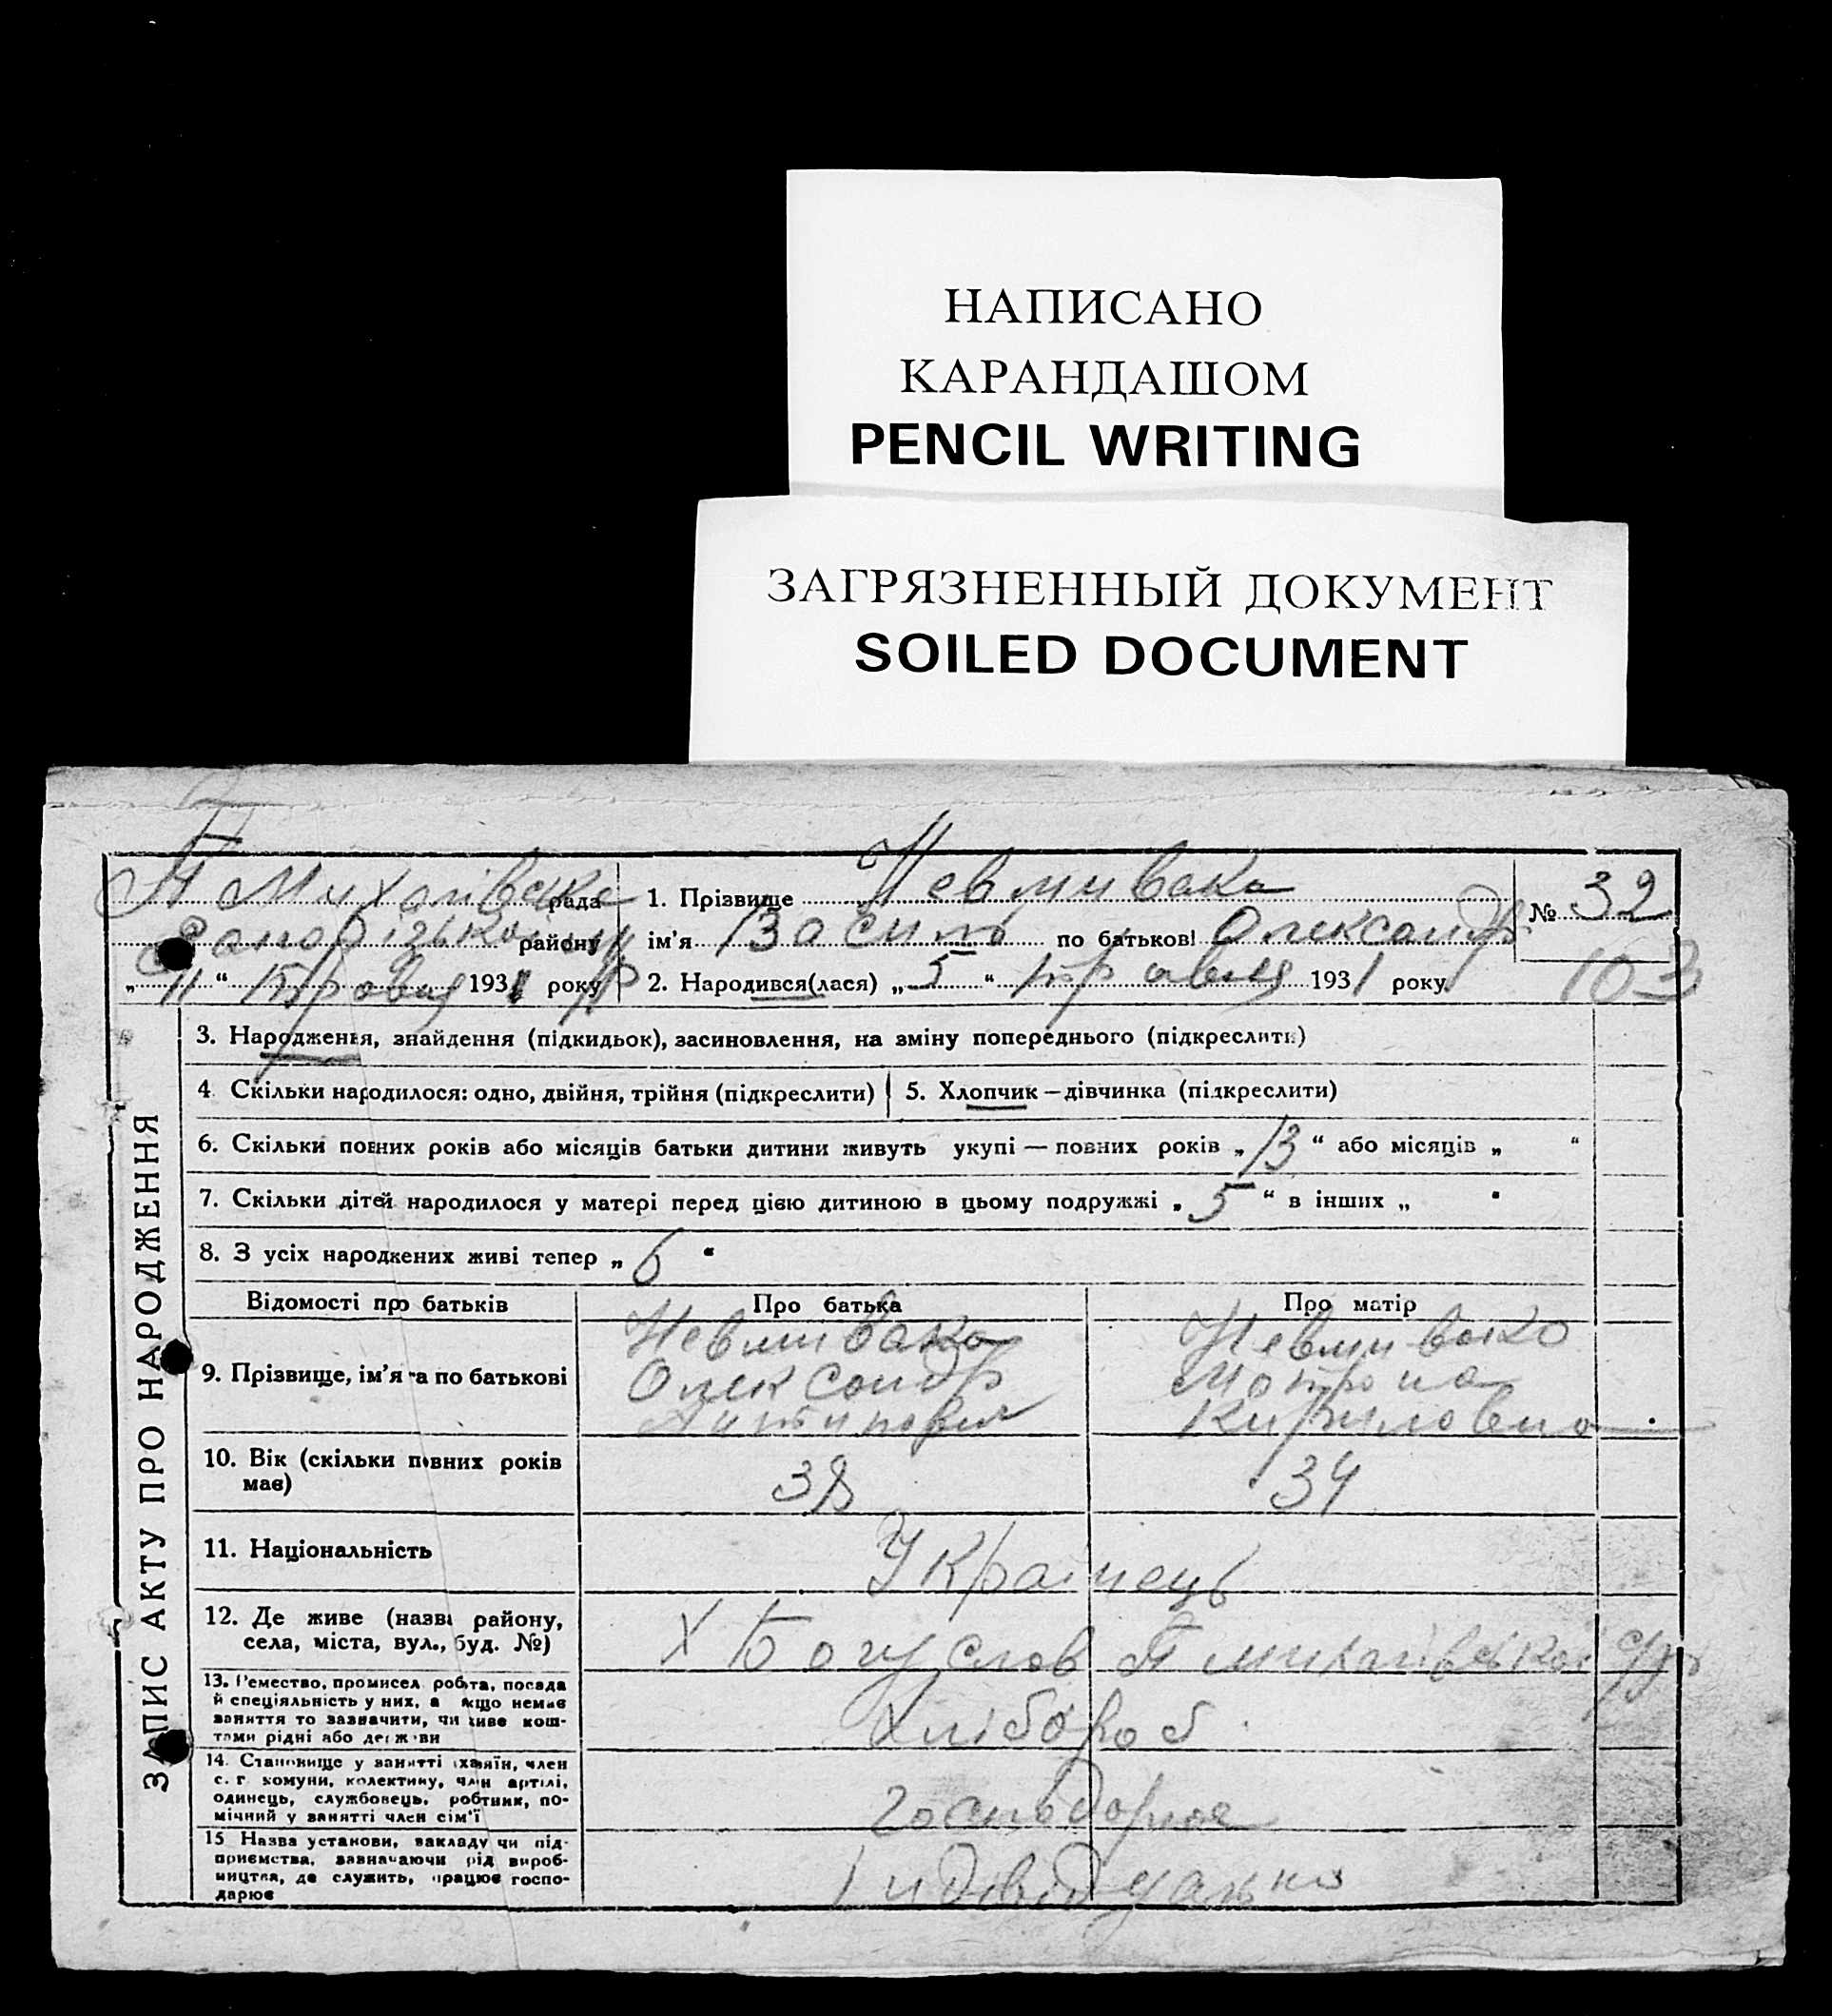 НАПИСАНО
КАРАНДАШОМ
PENCIL WRITING
ЗАГРЯЗНЕННЫЙ ДОКУМЕНТ
SOILED DOCUMENT
П Михайлівське рада
Запорізького району
„ 11 “ травня 1931 року
1. Прізвище Невмивака
ім’я Василь по батькові Олександр
2. Народився(лася) „ 5 “ травня 1931 року
№ 32
103
ЗАПИС АКТУ ПРО НАРОДЖЕННЯ
3. Народження, знайдення (підкидьок), засиновлення, на зміну попереднього (підкреслити)
4 Скільки народилося: одно, двійня, трійня (підкреслити)
5. Хлопчик — дівчинка (підкреслити)
6. Скільки повних років або місяців батьки дитини живуть укупі — повних років „ 13 “ або місяців „ “
7. Скільки дітей народилося у матері перед цією дитиною в цьому подружжі „ 5 “ в інших „ “
8. З усіх народжених живі тепер „ 6 “
Відомості про батьків
Про батька
Про матір
9. Прізвище, ім’я та по батькові
Невмивака
Олександр
Невмивако
Мотрона
Кириловна
10. Вік (скільки повних років
має)
38
34
11. Національність
Українець
12. Де живе (назва району,
села, міста, вул., буд. №)
Х Богуслов П михайлівської с/р
13. Ремество, промисел робота, посада
й спеціяльність у них, а якщо немає
заняття то зазначити, чи живе кош-
тами рідні або держави
Хлібороб
14. Становище у занятті хазяїн, член
с. г. комуни, колективу, член артілі,
одинець, службовець, робтник, по-
мічний у занятті член сім’ї
Господорює
15 Назва установи, закладу чи під-
приємства, зазначаючи рід вироб-
ництва, де служить, працює госпо-
дарює